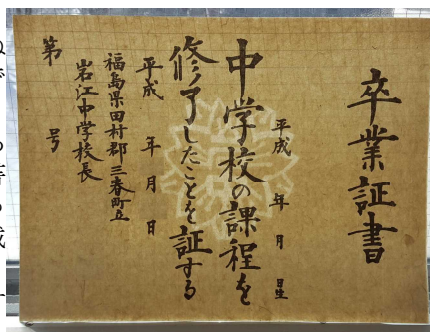 卒業証書
平成　年　月　日生
中学校の課程を
修了したことを証する
平成　年　月　日
福島県田村郡三春町立
岩江中学校長
第　号